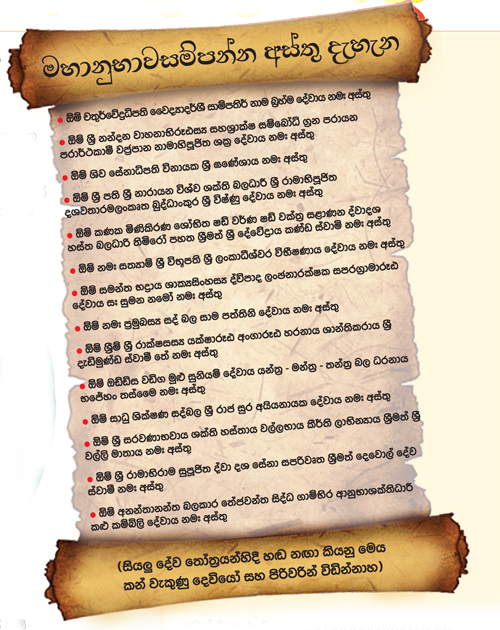 මහානුභාවසම්පන්න අස්තු දැහැන
ඕම් චතුර්වේදාධිපති වෛද්‍යාදර්ශී සාම්පතිර් නාම බ්‍රහ්ම දේවාය නමඃ අස්තු
ඕම් ශ්‍රී නන්දන වාහනාභිරූඪස්‍ය සහශ්‍රාක්ෂ සම්බෝධි ග්‍රන පරායන
පරාර්ථකාමී වජ්‍රපාන නාමාභිපූජිත ශක්‍ර දේවාය නමඃ අස්තු
ඕම් ශිව සේනාධිපති විනායක ශ්‍රී ඝණේශාය නමඃ අස්තු
ඕම් ශ්‍රී පති ශ්‍රී නාරායන විශ්ව ශක්ති බලධාරී ශ්‍රී රාමාභිපූජිත
දශවතාරමලංකෘත බුද්ධාංකුර ශ්‍රී විෂ්ණු දේවාය නමඃ අස්තු
ඕම් කණක මිණිකිරණ ශෝභිත ෂඩ් වර්ණ ෂඩ් වක්ත්‍ර සළාණන ද්වාදශ
හස්ත බලධාරී තිමිරෝ පහත ශ්‍රීමත් ශ්‍රී දේවේන්ද්‍රාය කණ්ඩ ස්වාමි නමඃ අස්තු
ඕම් නමඃ සත්‍යාමි ශ්‍රී විභූපති ශ්‍රී ලංකාධිශ්වර විභීෂණාය දේවාය නමඃ අස්තු
ඕම් සමන්ත භද්‍රාය ශාක්‍යසිංහස්‍ය ද්විපාද ලංඡනාරක්ෂක සපරග්‍රාමාරූඪ
දේවාය සඃ සුමන නමෝ නමඃ අස්තු
ඕම් නමඃ ප්‍රමුඛස්‍ය සද් බල සාම පත්තිනි දේවාය නමඃ අස්තු
ඕම් ශ්‍රීම් ශ්‍රී රාක්ෂසස්‍ය යක්ෂාරූඪ අංගාරූඪ හරනාය ශාන්තිකරාය ශ්‍රී
දැඩිමුණ්ඩ ස්වාමී තේ නමඃ අස්තු
ඕම් ඔඩ්ඩිස වඩිග මුළු සුනියම් දේවාය යන්ත්‍ර - මන්ත්‍ර - තන්ත්‍ර බල ධරනාය
භජේහං තස්මෛ නමඃ අස්තු
ඕම් සාධු ශික්ෂණ සද්බල ශ්‍රී රාජ සුර අයියනායක දේවාය නමඃ අස්තු
ඕම් ශ්‍රී සරවණාභවාය ශක්ති හස්තාය වල්ලභාය කීර්ති ලාභිත්‍යාය ශ්‍රීමත් ශ්‍රී
වල්ලි මාතාය නමඃ අස්තු
ඕම් ශ්‍රී රාමාභිරාම සුපූජිත ද්වා දශ සේනා සපරිවෘත ශ්‍රීමත් දෙවොල් දේව
ස්වාමි නමඃ අස්තු
ඕම් අනන්තානන්ත බලකාර තේජවන්ත සිද්ධ ගාම්භිර ආනුභාශක්තිධාරී
කළු කම්බිලි දේවාය නමඃ අස්තු
(සියලු දේව තෝත්‍රයන්හිදී හඬ නඟා කියනු මෙය
කන් වැකුණු දෙවියෝ සහ පිරිවරින් විඩින්නාහ)